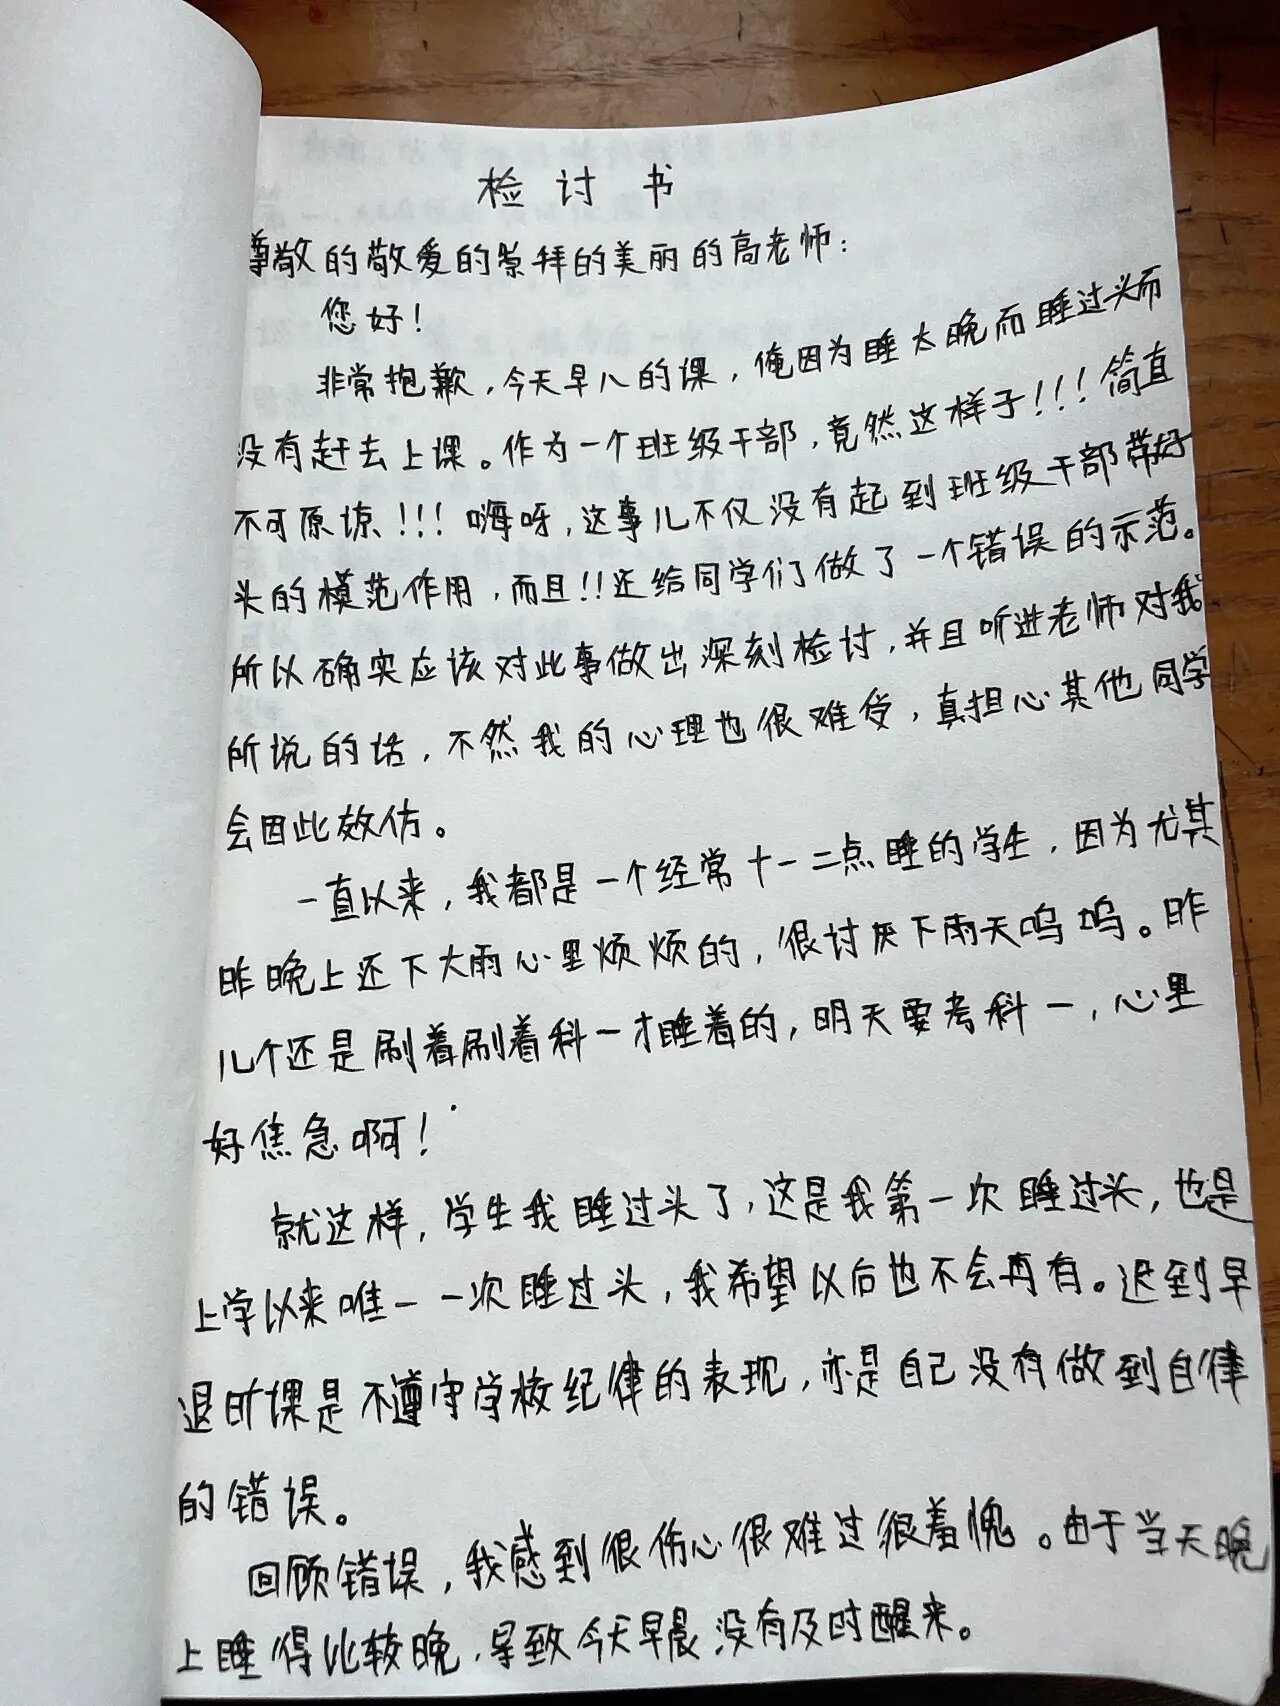 检讨书
尊敬的敬爱的崇拜的美丽的高老师：
您好！
非常抱歉，今天早八的课，俺因为睡太晚而睡过头而
没有赶去上课。作为一个班级干部，竟然这样子！！！简直
不可原谅！！！嗨呀，这事儿不仅没有起到班级干部带好
头的模范作用，而且！！还给同学们做了一个错误的示范。
所以确实应该对此事做出深刻检讨，并且听进老师对我
所说的话，不然我的心理也很难受，真担心其他同学
会因此效仿。
一直以来，我都是一个经常十一二点睡的学生，因为尤其
昨晚上还下大雨心里烦烦的，很讨厌下雨天呜呜。昨
儿个还是刷着刷着科一才睡着的，明天要考科一，心里
好焦急啊！
就这样，学生我睡过头了，这是我第一次睡过头，也是
上学以来唯一一次睡过头，我希望以后也不会再有。迟到早
退旷课是不遵守学校纪律的表现，亦是自己没有做到自律
的错误。
回顾错误，我感到很伤心很难过很羞愧。由于当天晚
上睡得比较晚，导致今天早晨没有及时醒来。